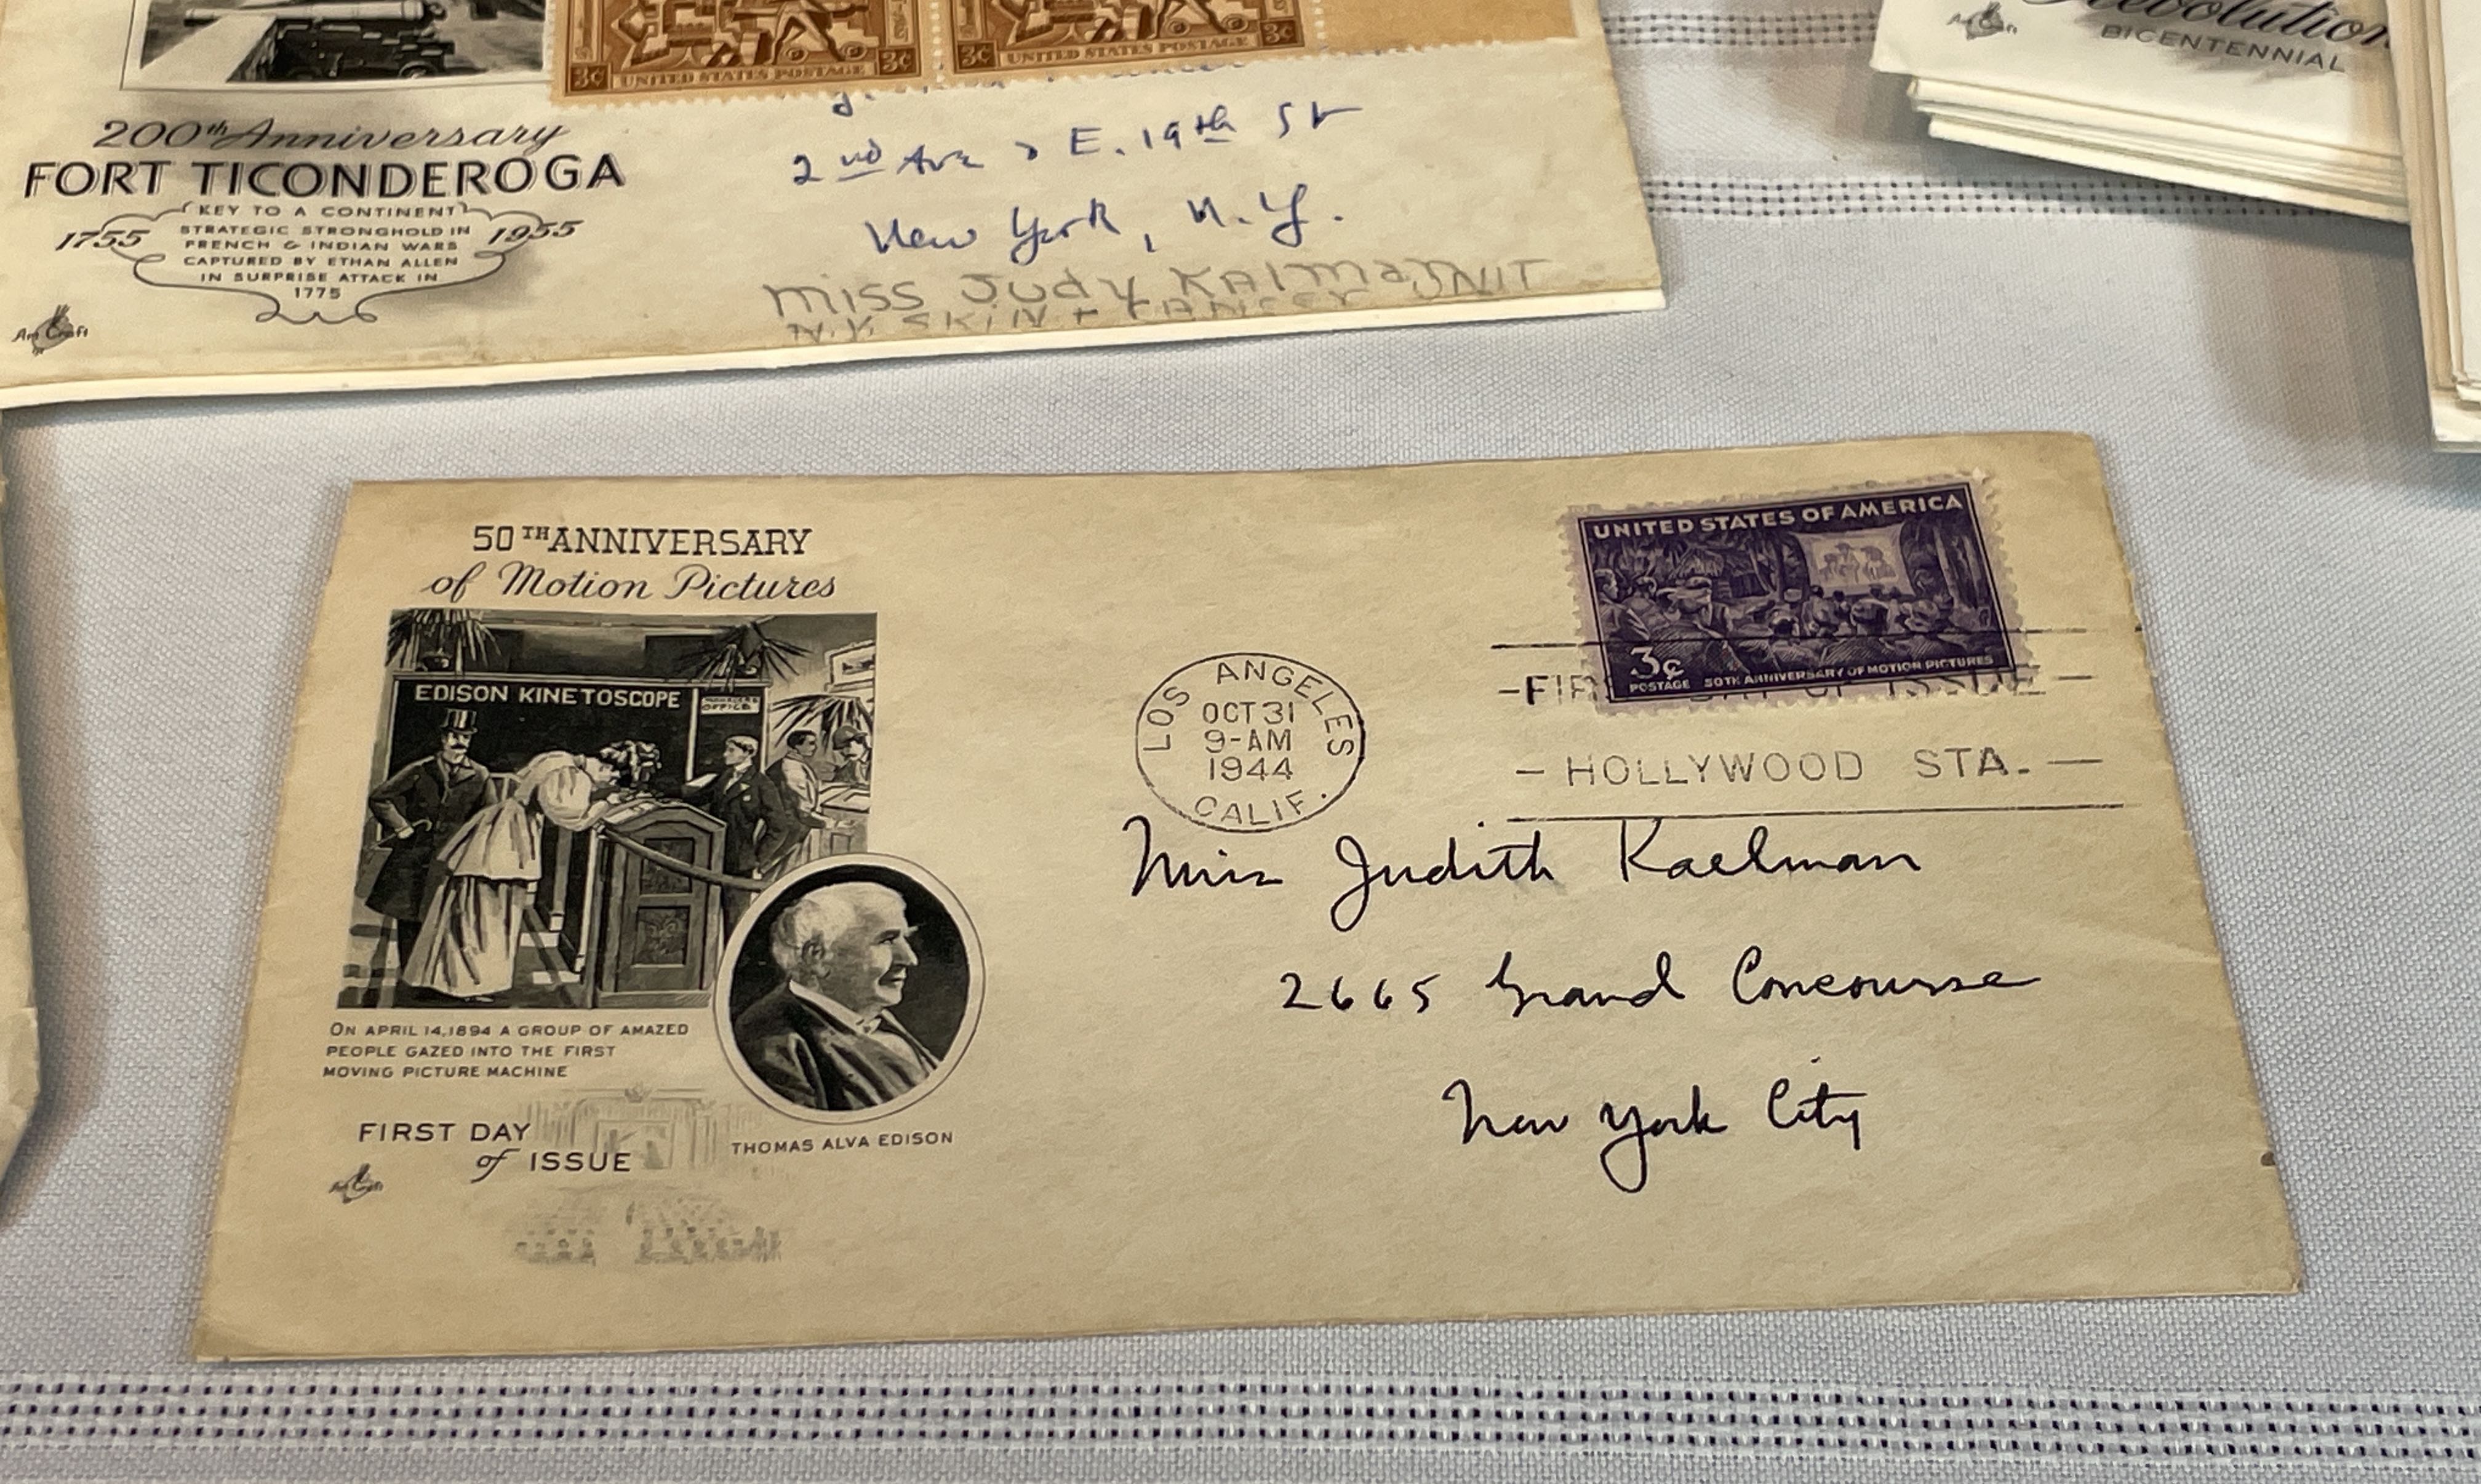 3¢ UNITED STATES POSTAGE 3¢
3¢ UNITED STATES POSTAGE 3¢
200th Anniversary
FORT TICONDEROGA
KEY TO A CONTINENT
1755 STRATEGIC STRONGHOLD IN 1955
FRENCH & INDIAN WARS
CAPTURED BY ETHAN ALLEN
IN SURPRISE ATTACK IN
1775
Art Craft
2nd Ave & E. 19th St
New York, N.Y.
Miss Judy Kalman
N.Y. SKIN +
Revolution
BICENTENNIAL
50TH ANNIVERSARY
of Motion Pictures
EDISON KINETOSCOPE
MANAGERS
OFFICE
ON APRIL 14, 1894 A GROUP OF AMAZED
PEOPLE GAZED INTO THE FIRST
MOVING PICTURE MACHINE
FIRST DAY
of ISSUE
THOMAS ALVA EDISON
Art Craft
UNITED STATES OF AMERICA
3¢
POSTAGE 50TH ANNIVERSARY OF MOTION PICTURES
LOS ANGELES
OCT 31
9-AM
1944
CALIF.
-FIRST DAY OF ISSUE-
- HOLLYWOOD STA. -
Miss Judith Kaelman
2665 Grand Concourse
New York City